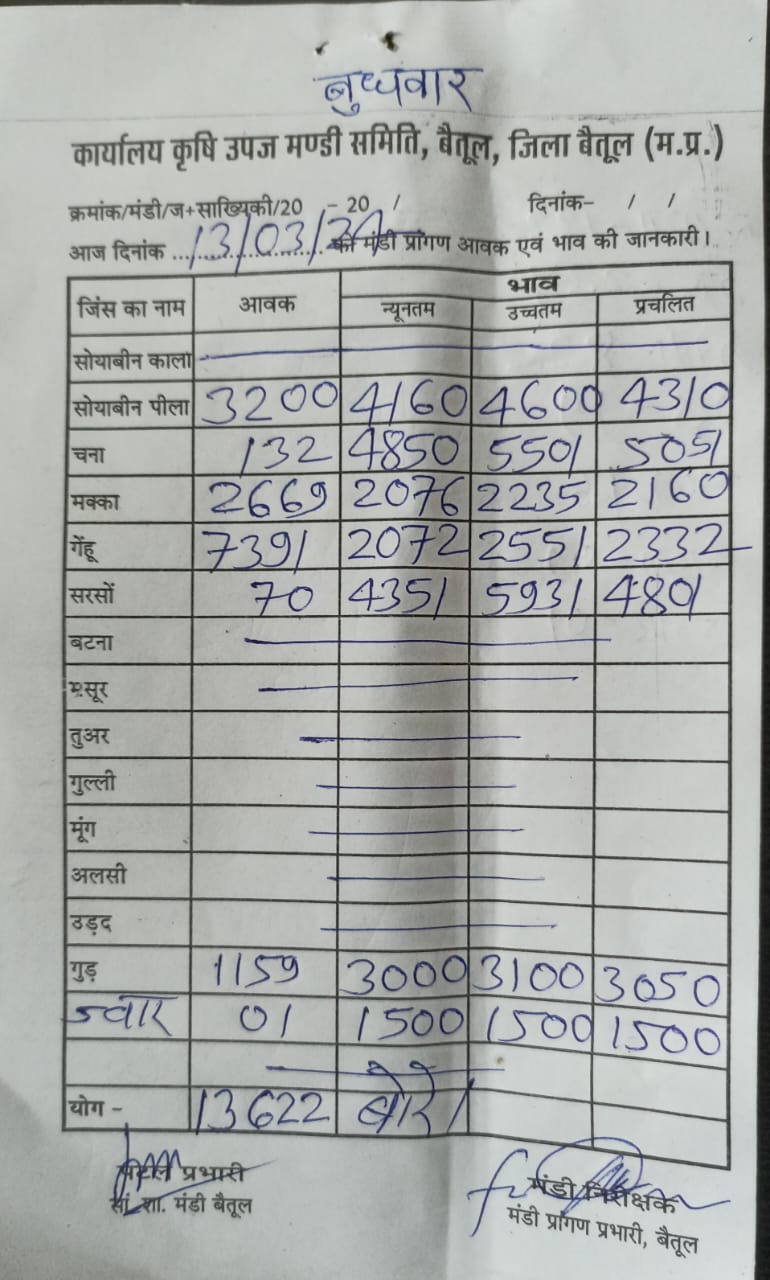 बुधवार
कार्यालय कृषि उपज मण्डी समिति, बैतूल, जिला बैतूल (म.प्र.)
क्रमांक/मंडी/ज+साख्यिकी/20 - 20 / दिनांक- / /
आज दिनांक 13/03/24 को मंडी प्रांगण आवक एवं भाव की जानकारी।
जिंस का नाम आवक भाव
न्यूनतम उच्चतम प्रचलित
सोयाबीन काला
सोयाबीन पीला 3200 4160 4600 4310
चना 132 4850 5501 5051
मक्का 2669 2076 2235 2160
गेंहू 7391 2072 2551 2332
सरसों 70 4351 5931 4801
बटना
मसूर
तुअर
गुल्ली
मूंग
अलसी
उड़द
गुड़ 1159 3000 3100 3050
ज्वार 01 1500 1500 1500
योग - 13622 बोरे।
प्रभारी मंडी निरीक्षक
सां. शा. मंडी बैतूल मंडी प्रांगण प्रभारी, बैतूल